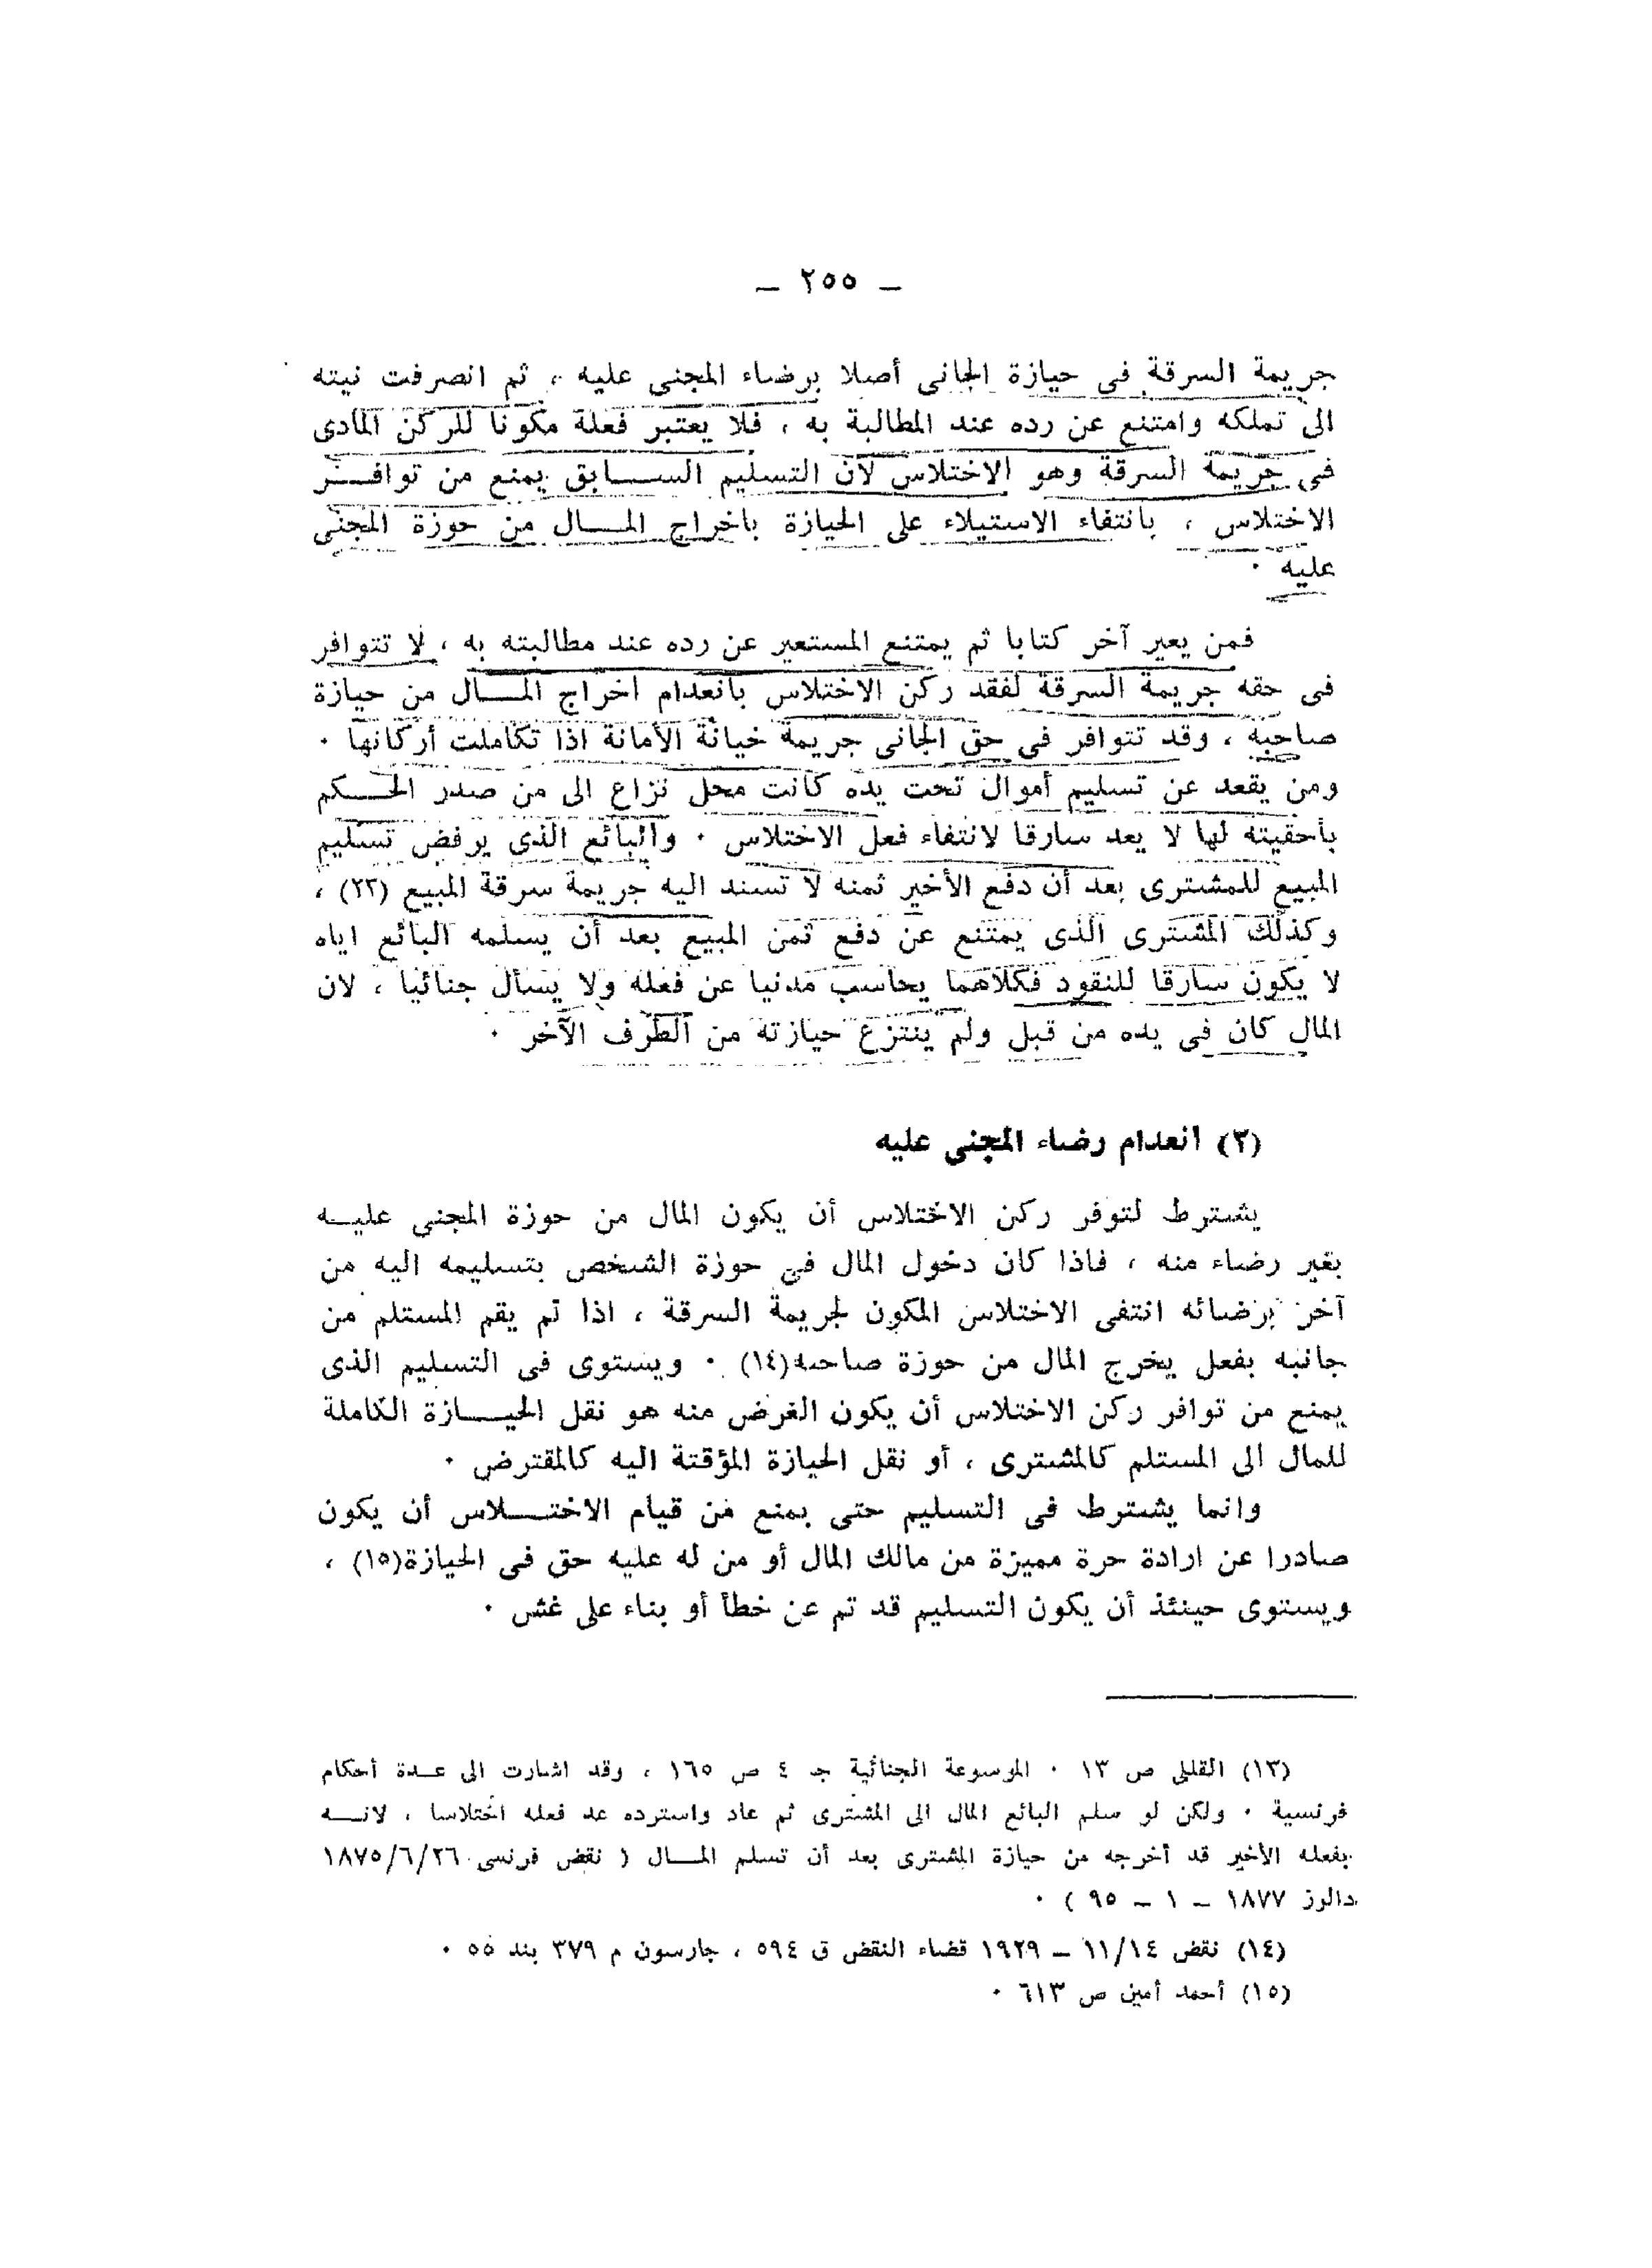 ـ ٢٥٥ ـ
جريمة السرقة فى حيازة الجانى أصلا برضاء المجنى عليه ، ثم انصرفت نيته
الى تملكه وامتنع عن رده عند المطالبة به ، فلا يعتبر فعلة مكونا للركن المادى
فى جريمة السرقة وهو الاختلاس لأن التسليم الســـابق يمنع من توافــر
الاختلاس ، بانتفاء الاستيلاء على الحيازة باخراج المــال من حوزة المجنى
عليه ٠
فمن يعير آخر كتابا ثم يمتنع المستعير عن رده عند مطالبته به ، لا تتوافر
فى حقه جريمة السرقة لفقد ركن الاختلاس بانعدام اخراج المــال من حيازة
صاحبه ، وقد تتوافر فى حق الجانى جريمة خيانة الأمانة اذا تكاملت أركانها ٠
ومن يقعد عن تسليم أموال تحت يده كانت محل نزاع الى من صدر الحــكم
بأحقيته لها لا يعد سارقا لانتفاء فعل الاختلاس ٠ والبائع الذى يرفض تسليم
المبيع للمشترى بعد أن دفع الأخير ثمنه لا تسند اليه جريمة سرقة المبيع (٢٣) ،
وكذلك المشترى الذى يمتنع عن دفع ثمن المبيع بعد أن يسلمه البائع اياه
لا يكون سارقا للنقود فكلاهما يحاسب مدنيا عن فعله ولا يسأل جنائيا ، لان
المال كان فى يده من قبل ولم ينتزع حيازته من الطرف الآخر ٠
(٢) انعدام رضاء المجنى عليه
يشترط لتوفر ركن الاختلاس أن يكون المال من حوزة المجنى عليــه
بغير رضاء منه ، فاذا كان دخول المال فى حوزة الشخص بتسليمه اليه من
آخر برضائه انتفى الاختلاس المكون لجريمة السرقة ، اذا تم يقم المستلم من
جانبه بفعل يخرج المال من حوزة صاحبه(١٤) ٠ ويستوى فى التسليم الذى
يمنع من توافر ركن الاختلاس أن يكون الغرض منه هو نقل الحيــازة الكاملة
للمال الى المستلم كالمشترى ، أو نقل الحيازة المؤقتة اليه كالمقترض ٠
وانما يشترط فى التسليم حتى يمنع من قيام الاختــلاس أن يكون
صادرا عن ارادة حرة مميزة من مالك المال أو من له عليه حق فى الحيازة(١٥) ،
ويستوى حينئذ أن يكون التسليم قد تم عن خطأ أو بناء على غش ٠
(١٣) القللى ص ١٣ ٠ الموسوعة الجنائية جـ ٤ ص ١٦٥ ، وقد اشارت الى عــدة أحكام
فرنسية ٠ ولكن لو سلم البائع المال الى المشترى ثم عاد واسترده عد فعله اختلاسا ، لانــه
بفعله الأخير قد أخرجه من حيازة المشترى بعد أن تسلم المــال ( نقض فرنسى ١٨٧٥/٦/٢٦
دالوز ١٨٧٧ ـ ١ ـ ٩٥ ) ٠
(١٤) نقض ١١/١٤ ـ ١٩٢٩ قضاء النقض ق ٥٩٤ ، جارسون م ٣٧٩ بند ٥٥ ٠
(١٥) أحمد أمين ص ٦١٣ ٠